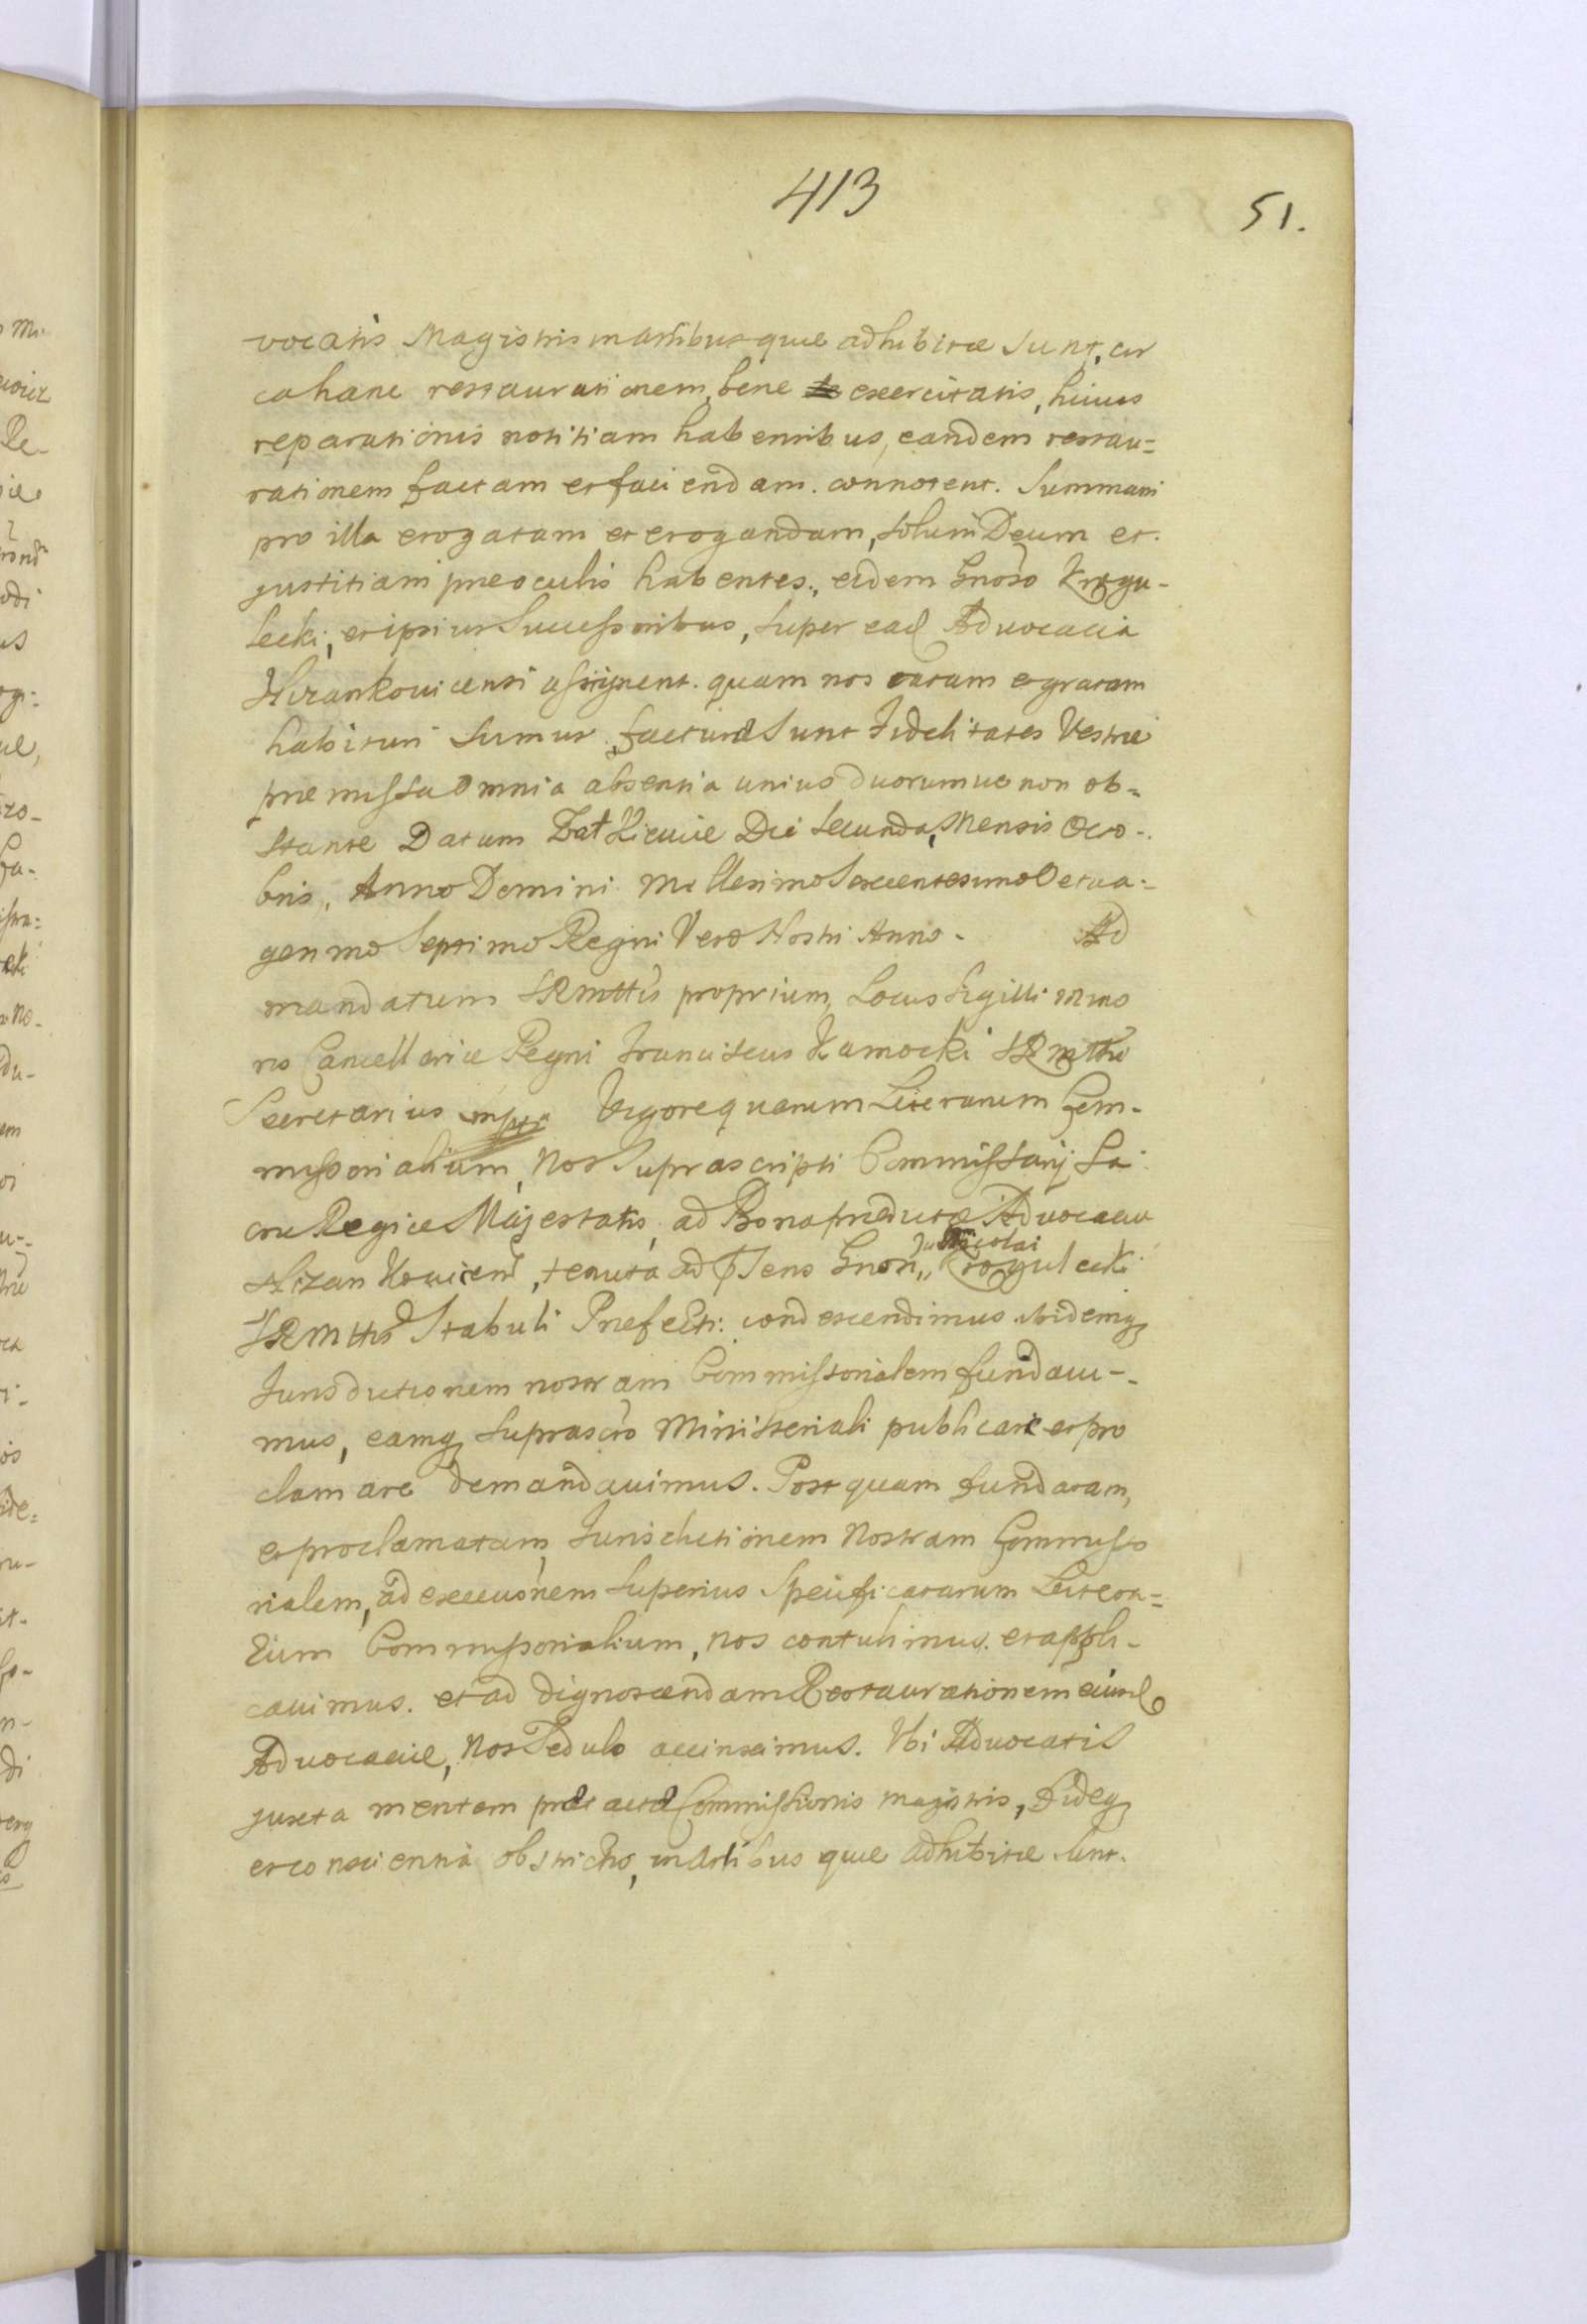 413
51.
vocatis Magistris in artibus quæ adhibitæ sunt, cir
ca hanc restaurationem, bene exercitatis, huius
reparationis notitiam habentibus, eandem restau=
rationem factam et faciendam. connotent. Summam
pro illa erogatam et erogandam, solum Deum et.
justitiam præ oculis habentes., eidem Gnoso Krogu-
lecki, et ipsius Successoribus, super ead Advocacia
assignent. quam nos ratam et gratam
habituri sumus. facturæ sunt Fidelitates Vestræ
præmissa omnia absentia unius duorumve non ob=
stante Datum Die Secunda, Mensis Octo-.
bris, Anno Domini Millesimo Sexcentesimo Octua=
gesimo Septimo Regni Vero Nostri Anno - Ad
mandatum SRMttis proprium, Locus Sigilli mino
ris Cancellariæ Regni Franciscus SRMttis
Secretarius Vigore quarum Literarum Com-
missorialium, Nos Suprascripti Commissarij Sa
cræ Regiæ Majestatis, ad Bona prædictæ Advocaciæ
tenuta ad Gnosi Krogulecki
Nicolai
SRMttis Stabuli Præfecti. condescendimus ibidemq
Jurisdictionem nostram Commissorialem fundaui-.
mus, eamq suprascro Ministeriali publicare et pro
clamare demandauimus. Post quam fundatam,
et proclamatam Jurisdictionem Nostram Commisso
rialem, ad execuonem superius Specificatarum Litera=
rum Commissorialium, nos contulimus. et appli-
cauimus. et ad dignoscendam Restaurationem eiusd
Advocaciæ, Nos Sedulo accinximus. Vbi Advocatis
juxta mentem Commissionis magistris, fideq
et conscientia obstrictis, in Artibus quæ adhibitæ sunt.